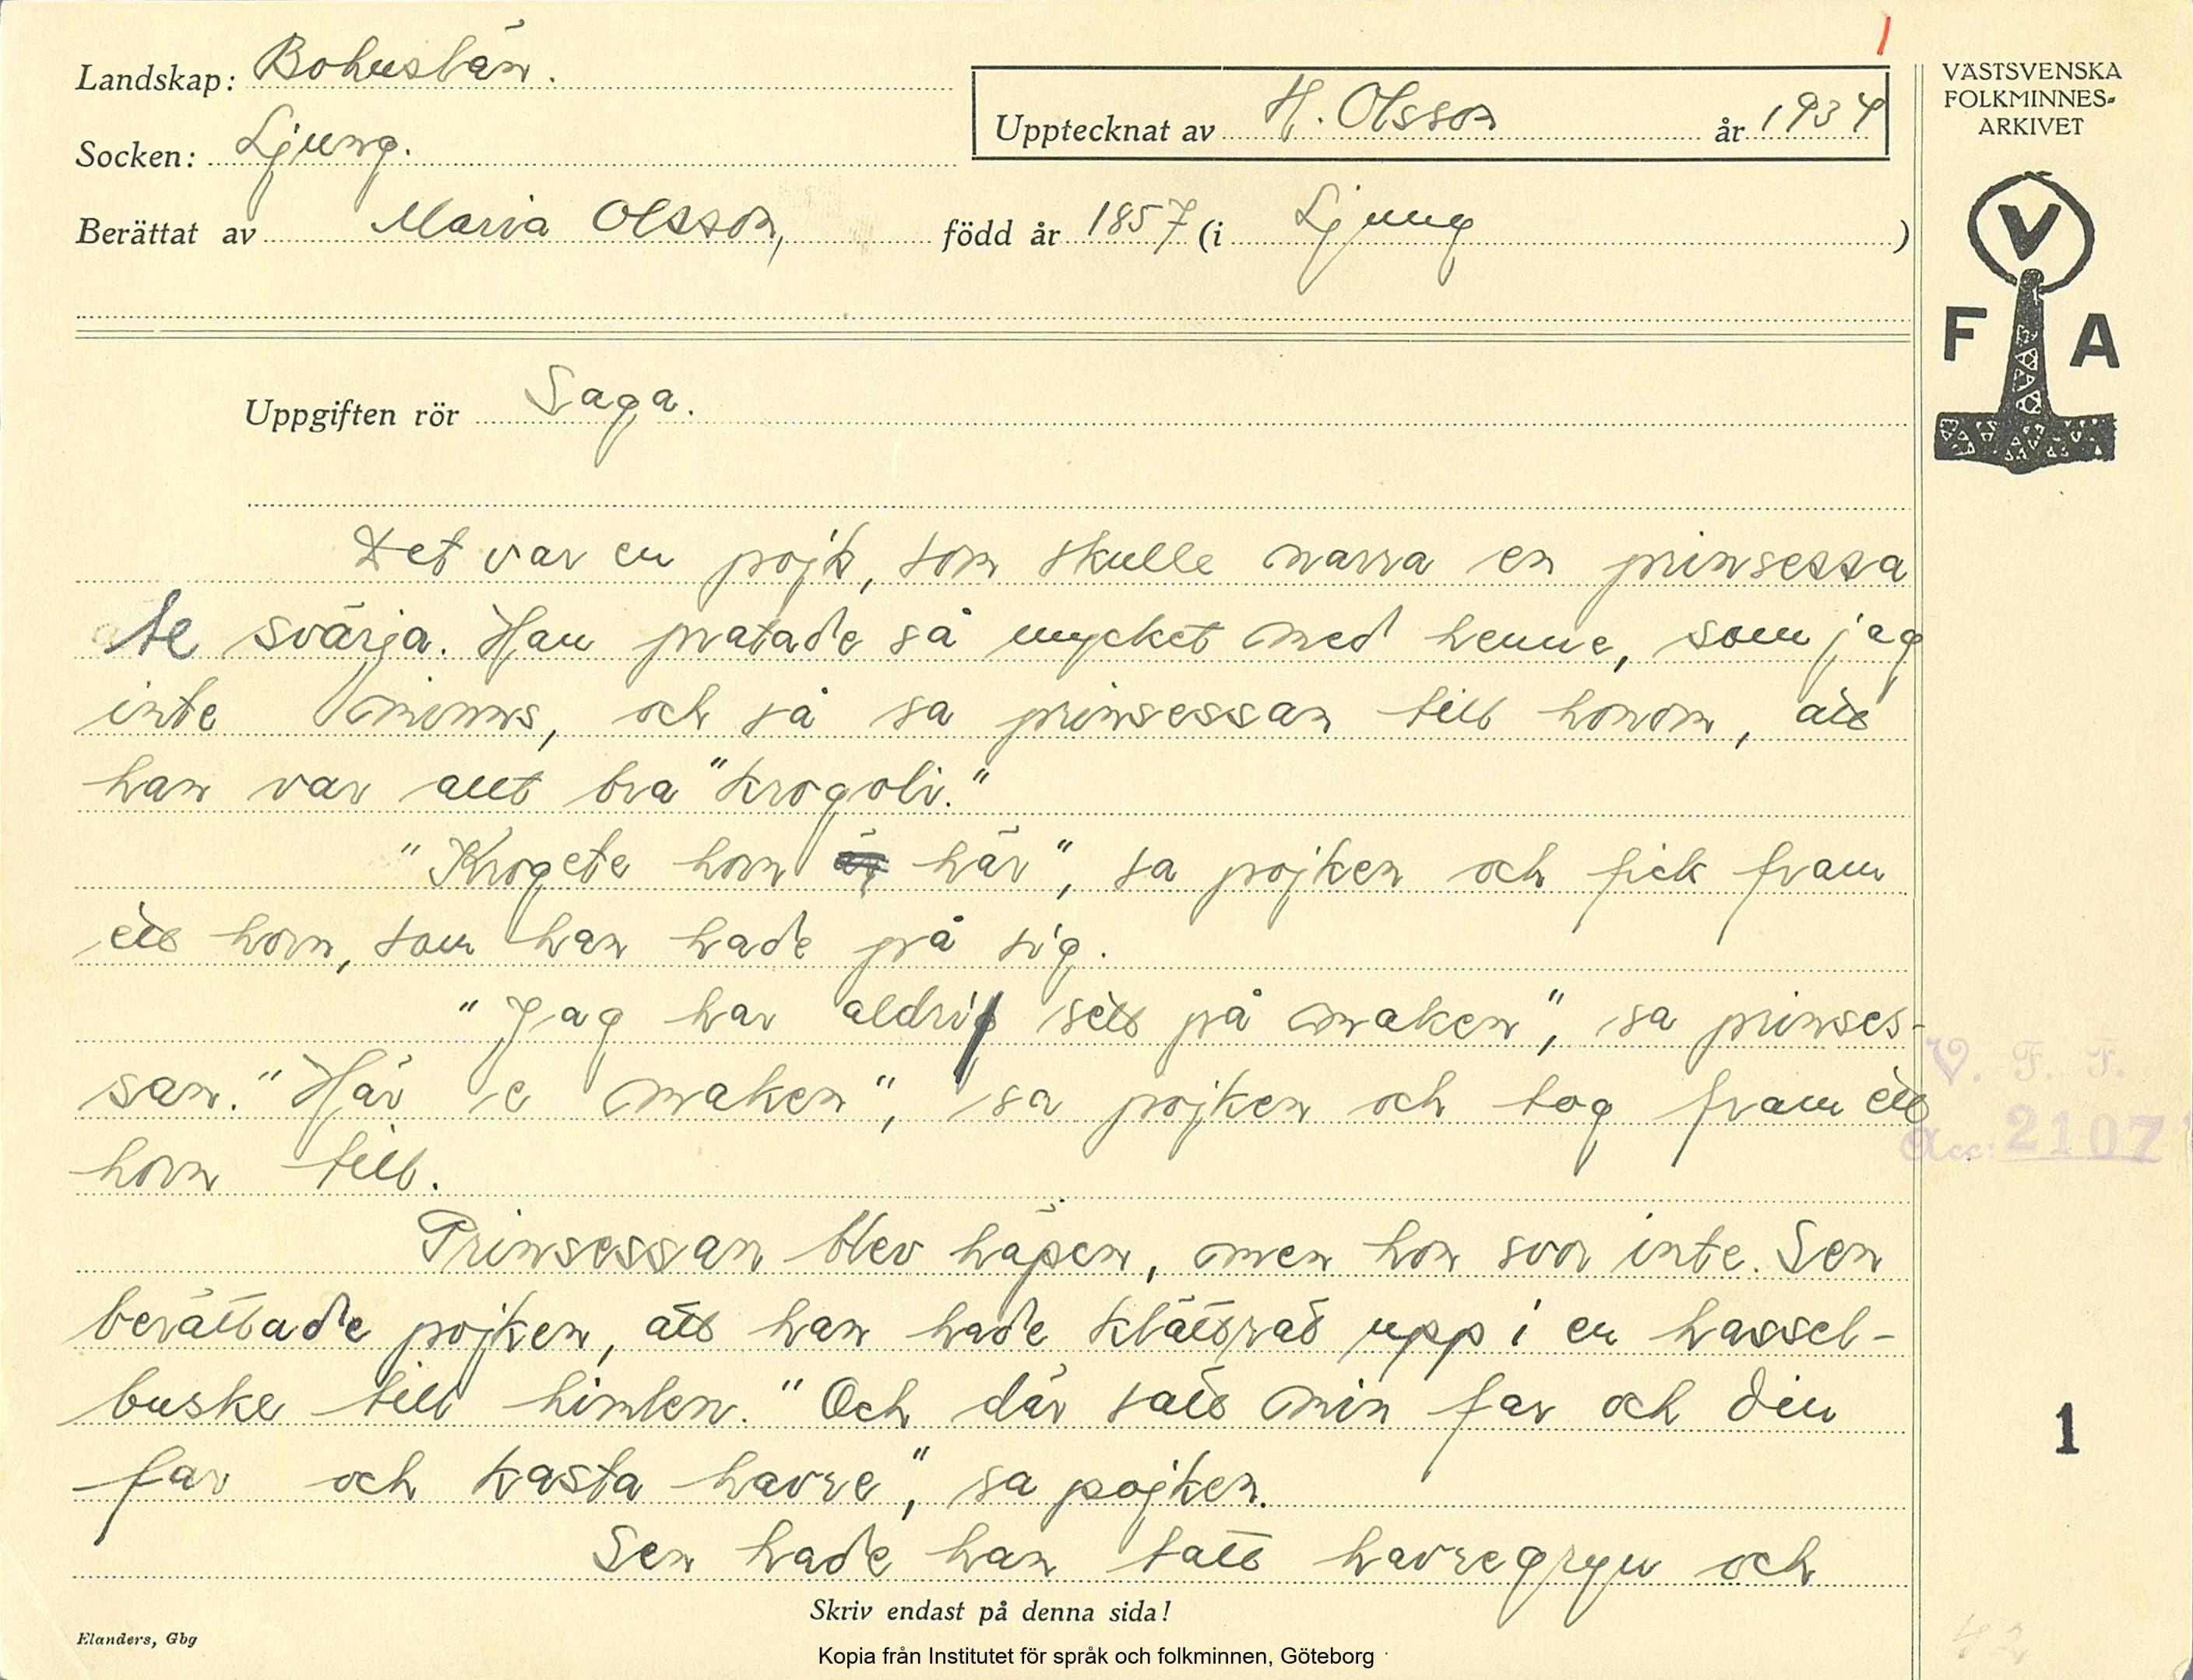 1
Landskap: Bohuslän.
Socken: Ljung.
Upptecknat av H. Olsson år 1934
Berättat av Maria Olsson, född år 1857 (i Ljung )
VÄSTSVENSKA
FOLKMINNES-
ARKIVET
V
F A
Uppgiften rör Saga.
Det var en pojk, som skulle narra en prinsessa
te svärja. Han pratade så mycket med henne, som jag
inte minns, och så sa prinsessan till honom, att
han var allt bra "krogoli."
"Krogete horn är här", sa pojken och fick fram
ett horn, som han hade på sig.
"Jag har aldrig sett på maken", sa prinses-
san. "Här e maken", sa pojken och tog fram ett
horn till.
V. F. F.
Acc: 2107
Prinsessan blev häpen, men hon svor inte. Sen
berättade pojken, att han hade klättrat upp i en hassel-
buske till himlen. "Och där satt min far och din
far och kasta havre", sa pojken.
1
Sen hade han tatt havregryn och
Skriv endast på denna sida!
Elanders, Gbg
Kopia från Institutet för språk och folkminnen, Göteborg